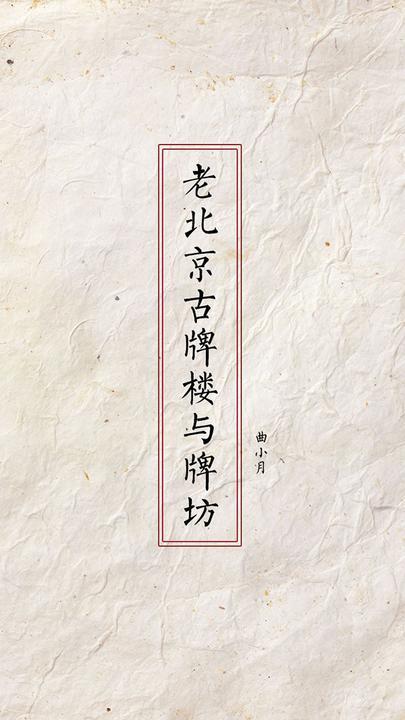 老北京古牌楼与牌坊
曲小月